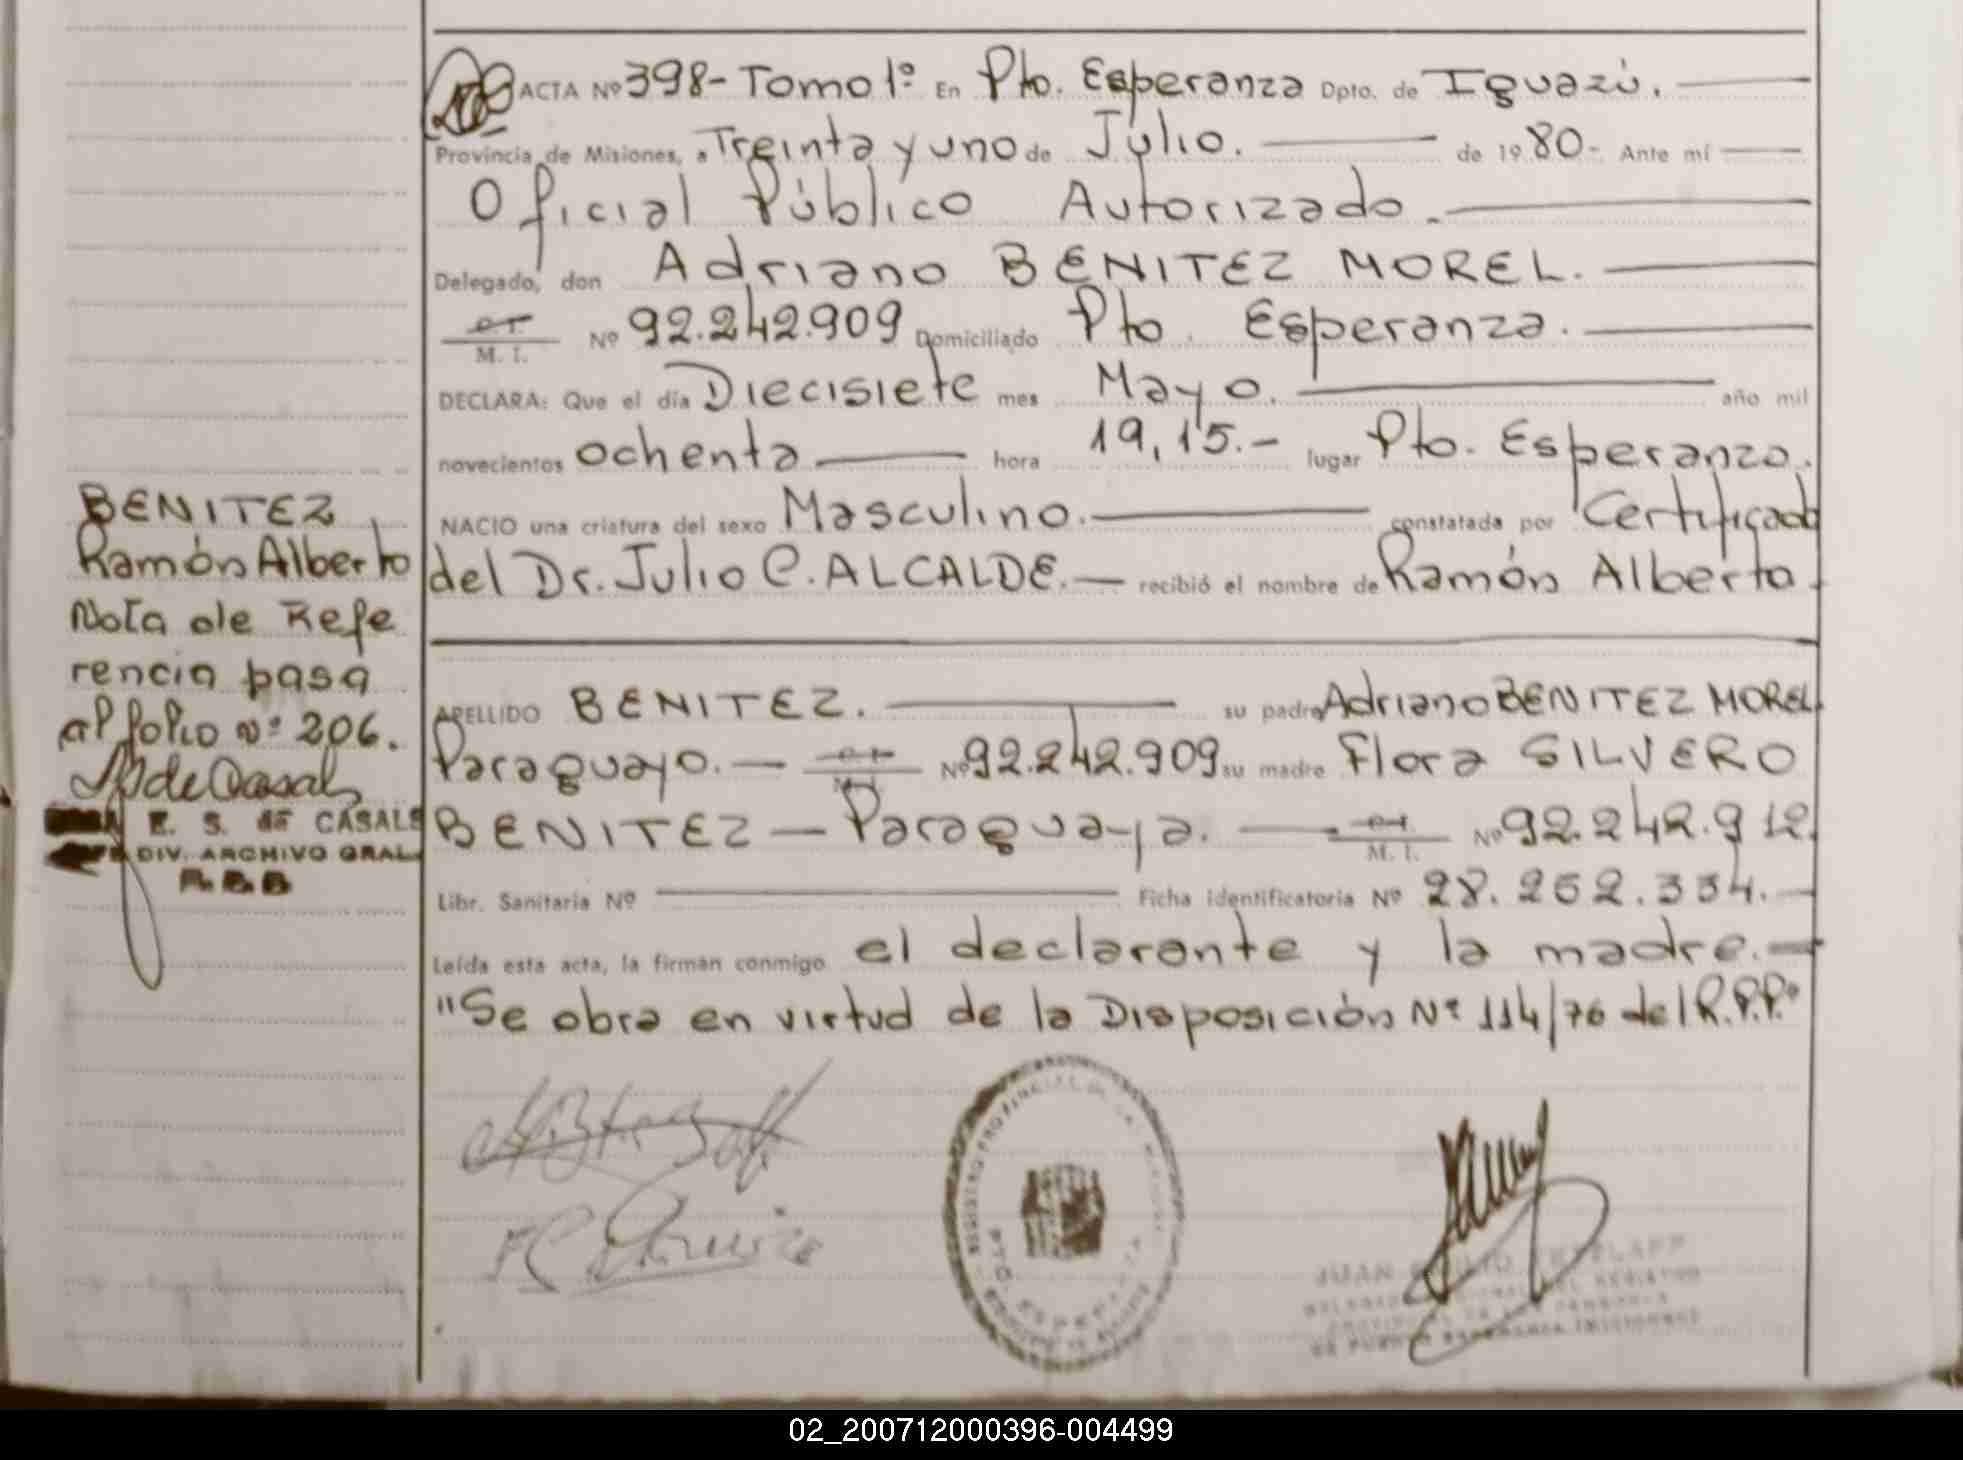 ACTA Nº 398- Tomo 1º En Pto. Esperanza Dpto. de Iguazú.
Provincia de Misiones, a Treinta y uno de Julio. de 1980.- Ante mí
Oficial Público Autorizado.
Delegado, don Adriano BENITEZ MOREL.
M. I. Nº 92.242.909 Domiciliado Pto. Esperanza.
DECLARA: Que el día Diecisiete mes Mayo. año mil
novecientos ochenta hora 19,15.- lugar Pto. Esperanza.
NACIO una criatura del sexo Masculino. constatada por Certificado
del Dr. Julio C. ALCALDE. recibió el nombre de Ramón Alberto.
BENITEZ
Ramón Alberto
Nota de Refe
rencia pasa
al folio nº 206.
E. S. de CASALS
DIV. ARCHIVO GRAL
APELLIDO BENITEZ. su padre Adriano BENITEZ MOREL
Paraguayo. M. I. Nº 92.242.909 su madre Flora SILVERO
BENITEZ - Paraguaya. M. I. Nº 92.242.912.
Libr. Sanitaria Nº Ficha identificatoria Nº 28.252.334.
Leída esta acta, la firman conmigo el declarante y la madre.
"Se obra en virtud de la Disposición Nº 114/76 del R.P.P."
PTO. ESPERANZA
JUAN
02_200712000396-004499